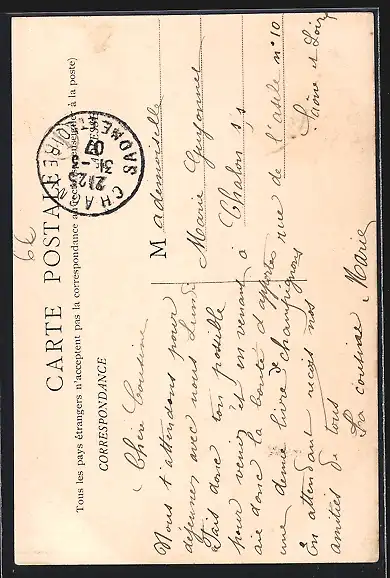 CARTE POSTALE
Tous les pays étrangers n'acceptent pas la correspondance au recto (se renseigner à la poste)
CORRESPONDANCE
ADRESSE
Chère Cousine
Nous t'attendons pour
déjeuner avec nous lundi
Fais donc ton possible
pour venir et en venant
aie donc la bonté d'apporter
une demie livre de champignons
En attendant reçois nos
amitiés de tous
Ta cousine Marie
Mademoiselle
Marie
à Chalon s/s
rue de l'asile n° 10
Saône et Loire
CHA
SAONE
31
07
6€